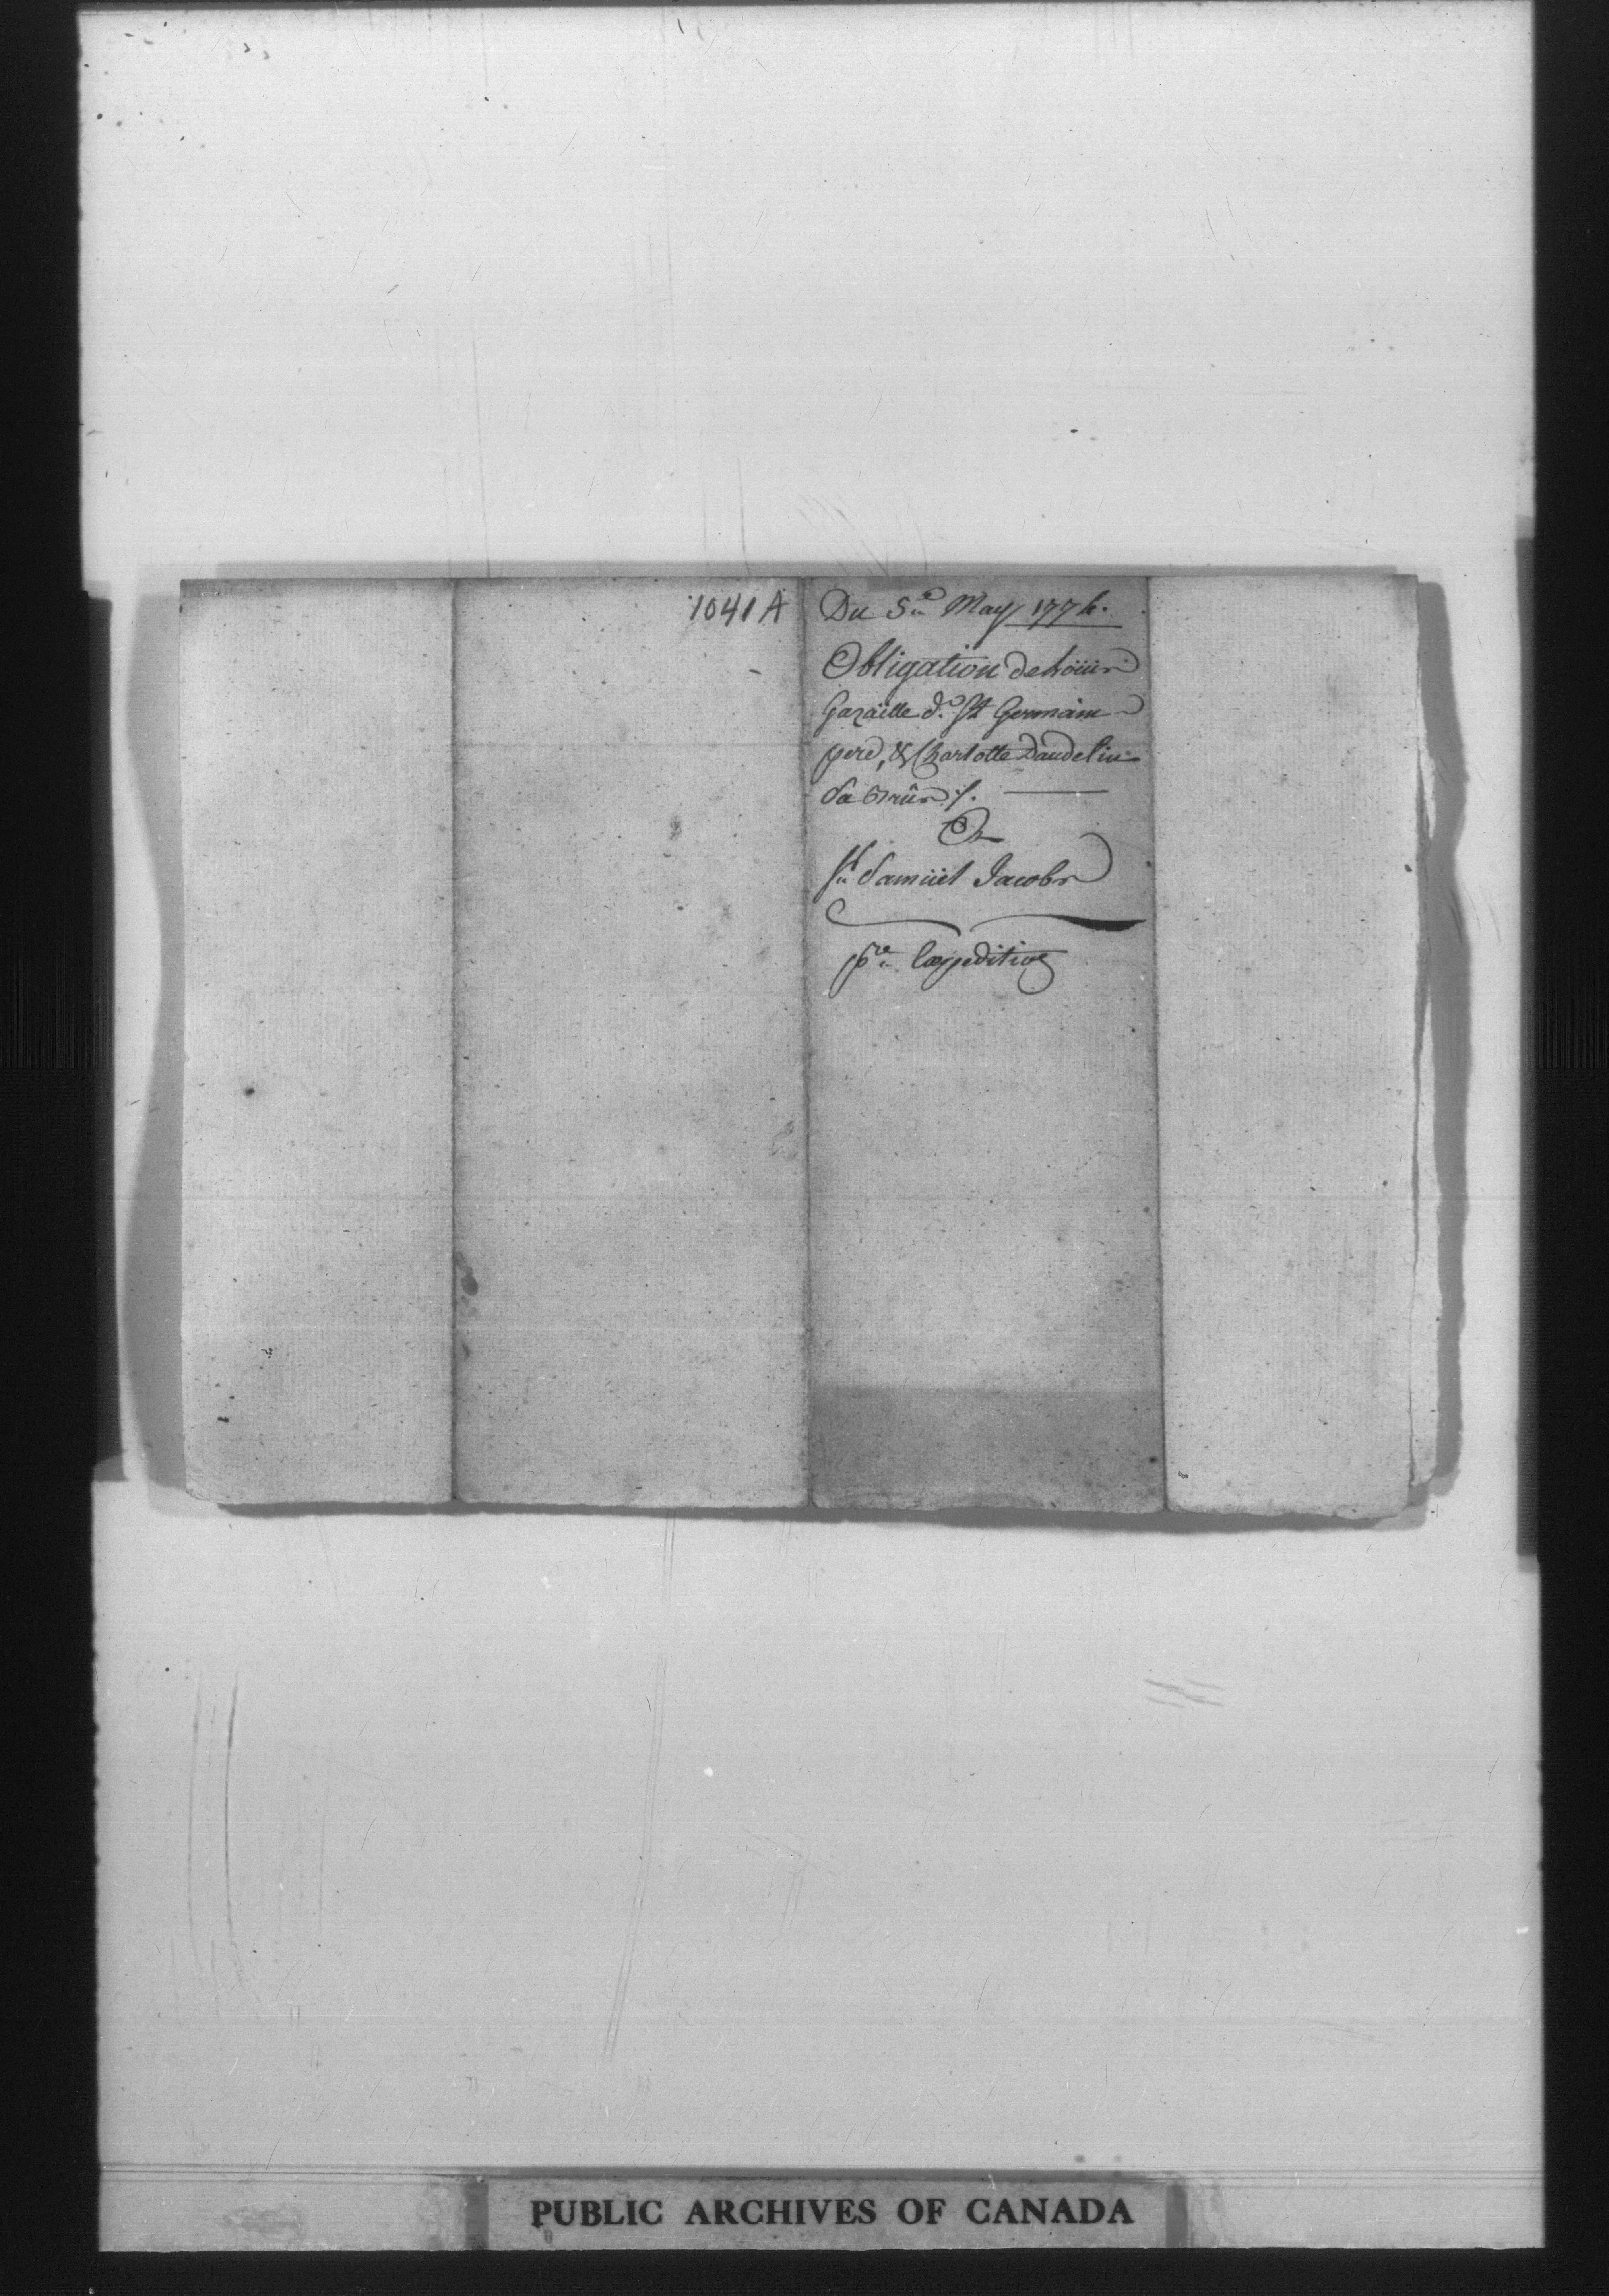 1041 A
Du 5e May 1776.
Obligation de Loüis
Gazaille d.t St Germain
pere, & Charlotte Daudelin
Sa
A
Sr Samüel Jacobs
pre Expedition
PUBLIC ARCHIVES OF CANADA